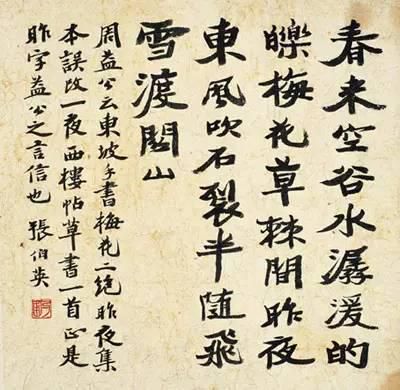 春来空谷水潺湲的
皪梅花草棘間昨夜
東風吹石裂半随飛
雪渡関山
周益公云東坡手書梅花二絶昨夜集
本誤改一夜西樓帖草書一首正是
昨字益公之言信也 張伯英